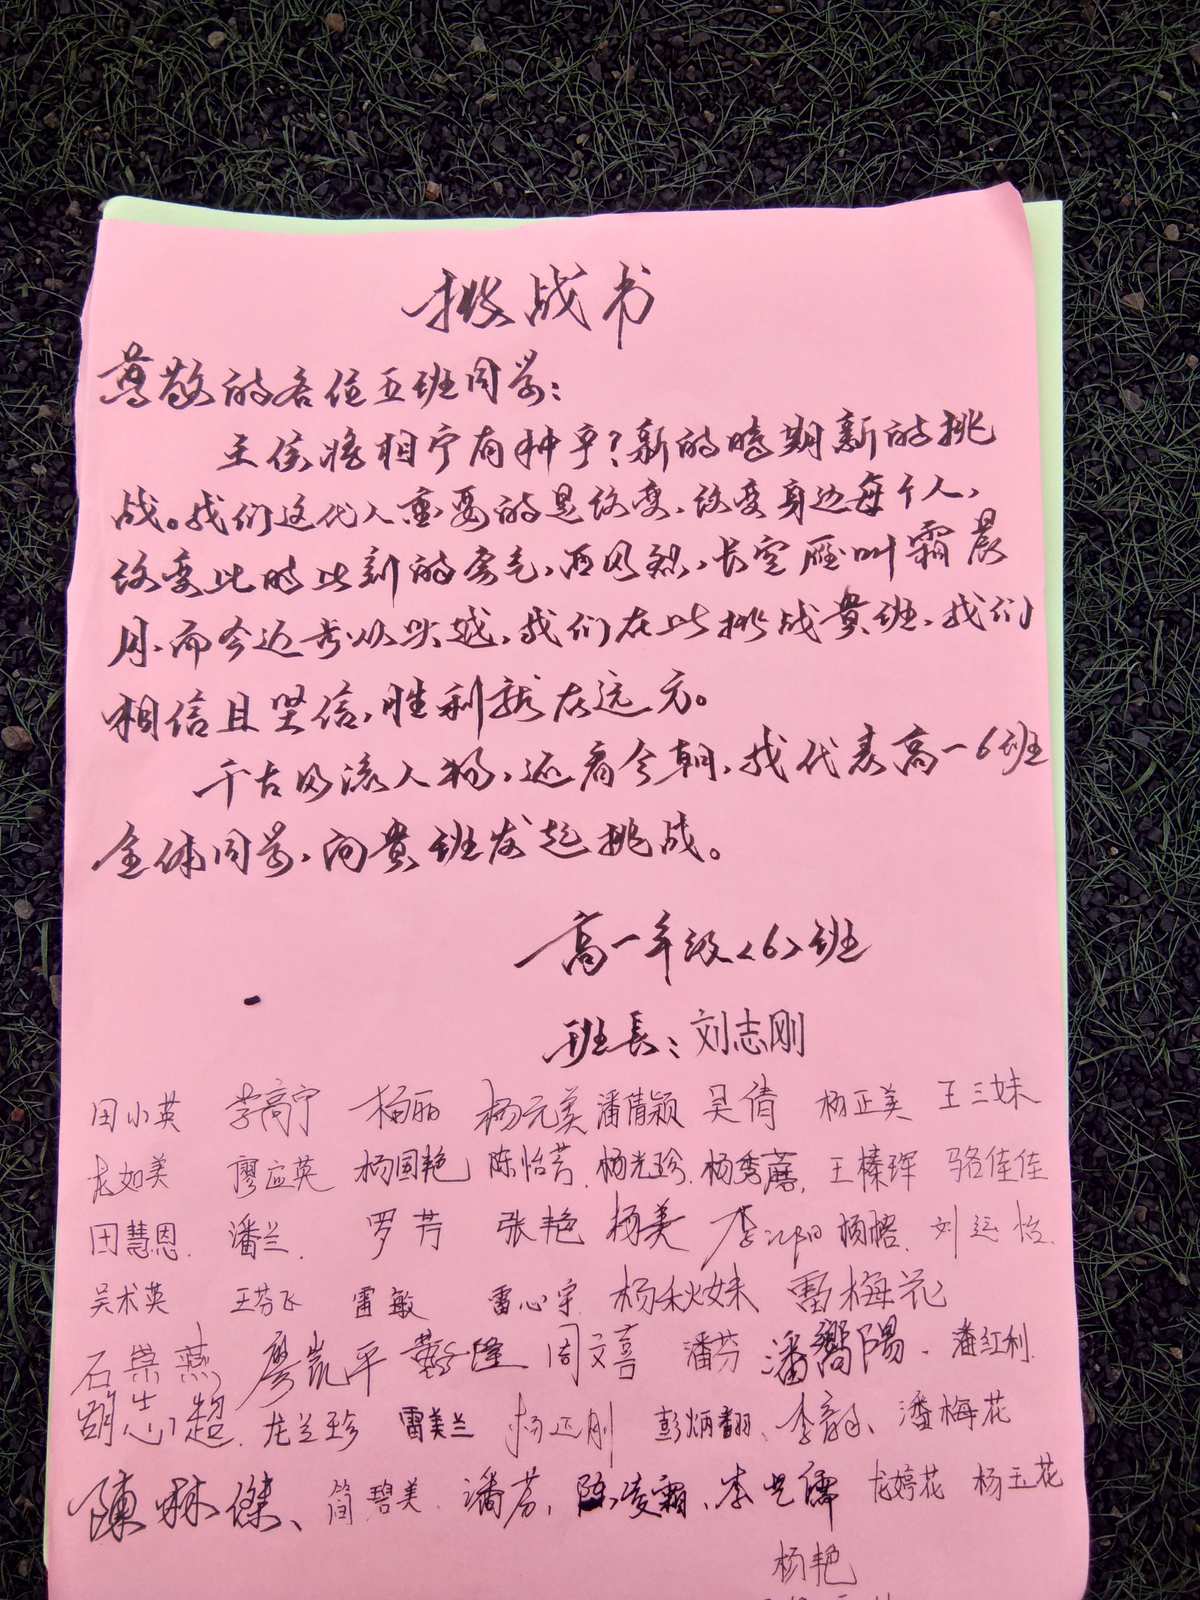 挑战书
尊敬的各位五班同学：
王侯将相宁有种乎？新的时期新的挑
战。我们这代人重要的是改变，改变身边每个人，
改变此时此刻的旁气，西风烈，长空雁叫霜晨
月，而今迈步从头越，我们在此挑战贵班，我们
相信且坚信，胜利就在远方。
千古风流人物，还看今朝，我代表高一6班
全体同学，向贵班发起挑战。
高一年级<6>班
班長：刘志刚
田小英 李高宁 杨丽 杨元美 潘倩颖 吴倩 杨正美 王三妹
龙如美 廖应英 杨国艳 陈怡芳 杨光珍 杨秀蘑 王榛珲 骆佳佳
田慧恩 潘兰 罗芳 张艳 杨美 李江阳 杨榕 刘运怡
吴术英 王芬飞 雷敏 雷心宇 杨秋妹 雷梅花
石崇燕 廖凯平 周文喜 潘芬 潘嚮陽 潘红利
胡志超 龙兰珍 雷美兰 杨还刚 彭炳翻 潘梅花
陳林傑、简碧美 潘芳，陈凌霜、龙婷花 杨玉花
杨艳